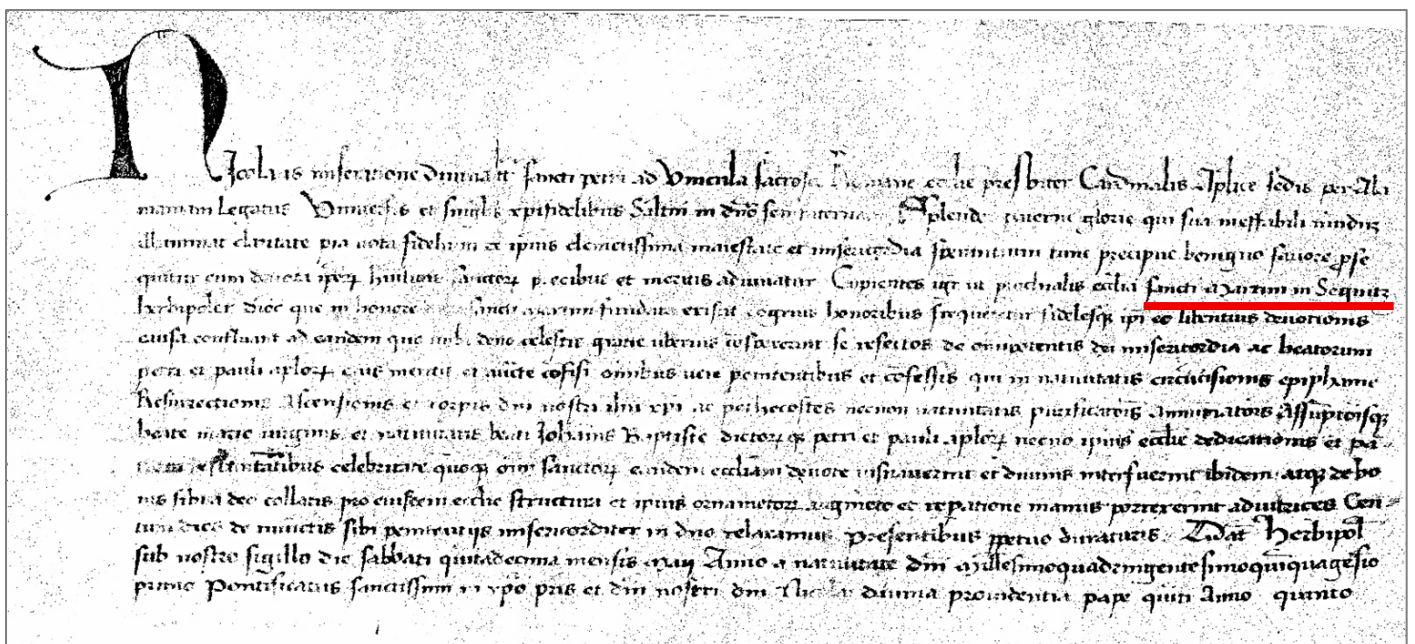 Nicolaus miseratione divina tt sancti petri ad Vincula sacrose Romane ecclie presbiter Cardinalis Aplice sedis per Ala
maniam Legatus Universis et singlis xpifidelibus Saltm in dno sempiternam Splendor paterne glorie qui sua ineffabili mundus
illuminat claritate pia vota fidelium de ipius clementissima maiestate et misericordia sperantium tunc precipue benigno favore prose
quitur cum devota ipor humilitas sanctor precibus et meritis adiuvatur Cupientes igr ut parochialis ecclia sancti Martini in Sequitz
herbipolen dioc que in honore sancti martini fundata existit congruis honoribus frequentetur fidelesq ipi eo libentius devotionis
causa confluant ad eandem quo inibi dono celestis gratie uberius conspexerint se refectos de omnipotentis dei misericordia ac beatorum
petri et pauli aplor eius meritis et aucte cofisi omnibus vere penitentibus et cofessis qui in nativitatis circucisionis epiphanie
Resurrectionis Ascensionis et corpis dni nostri ihu xpi ac pethecostes necnon nativitatis purificatois Annuntiatois Assuptoisq
beate marie virginis et nativitatis beati Johannis Baptiste dictorq petri et pauli aplor necno ipius ecclie dedicationis et pa
festivitatibus celebritate quoq oim sanctor eandem eccliam devote visitaverint et divinis interfuerint ibidem atq de bo
nis sibi a deo collatis pro eiusdem ecclie structura et ipius ornametor augmeto et repatione manus porrexerint adiutrices Cen-
tum dies de iniuctis sibi penitentiis misericorditer in dno relaxamus Presentibus ppetuo duraturis Dat Herbipol
sub nostro sigillo die sabbati quintadecima mensis maii Anno a nativitate dni Millesimoquadringentesimoquiquagesio
primo Pontificatus sanctissimi in xpo pris et dni nostri dni Nicolai divina providentia pape quiti Anno quinto